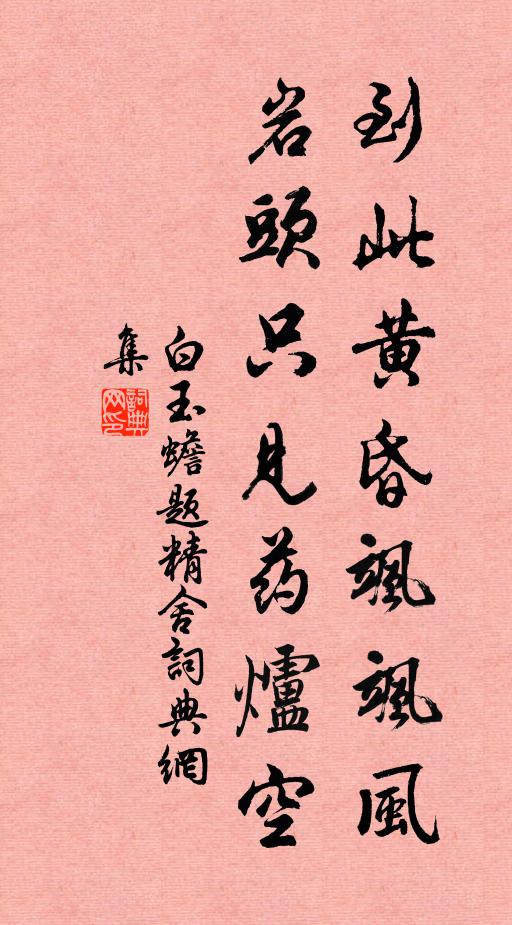 到此黄昏颯颯風
岩頭只見药爐空
白玉蟾题精舍詞典網
集
詞典網印